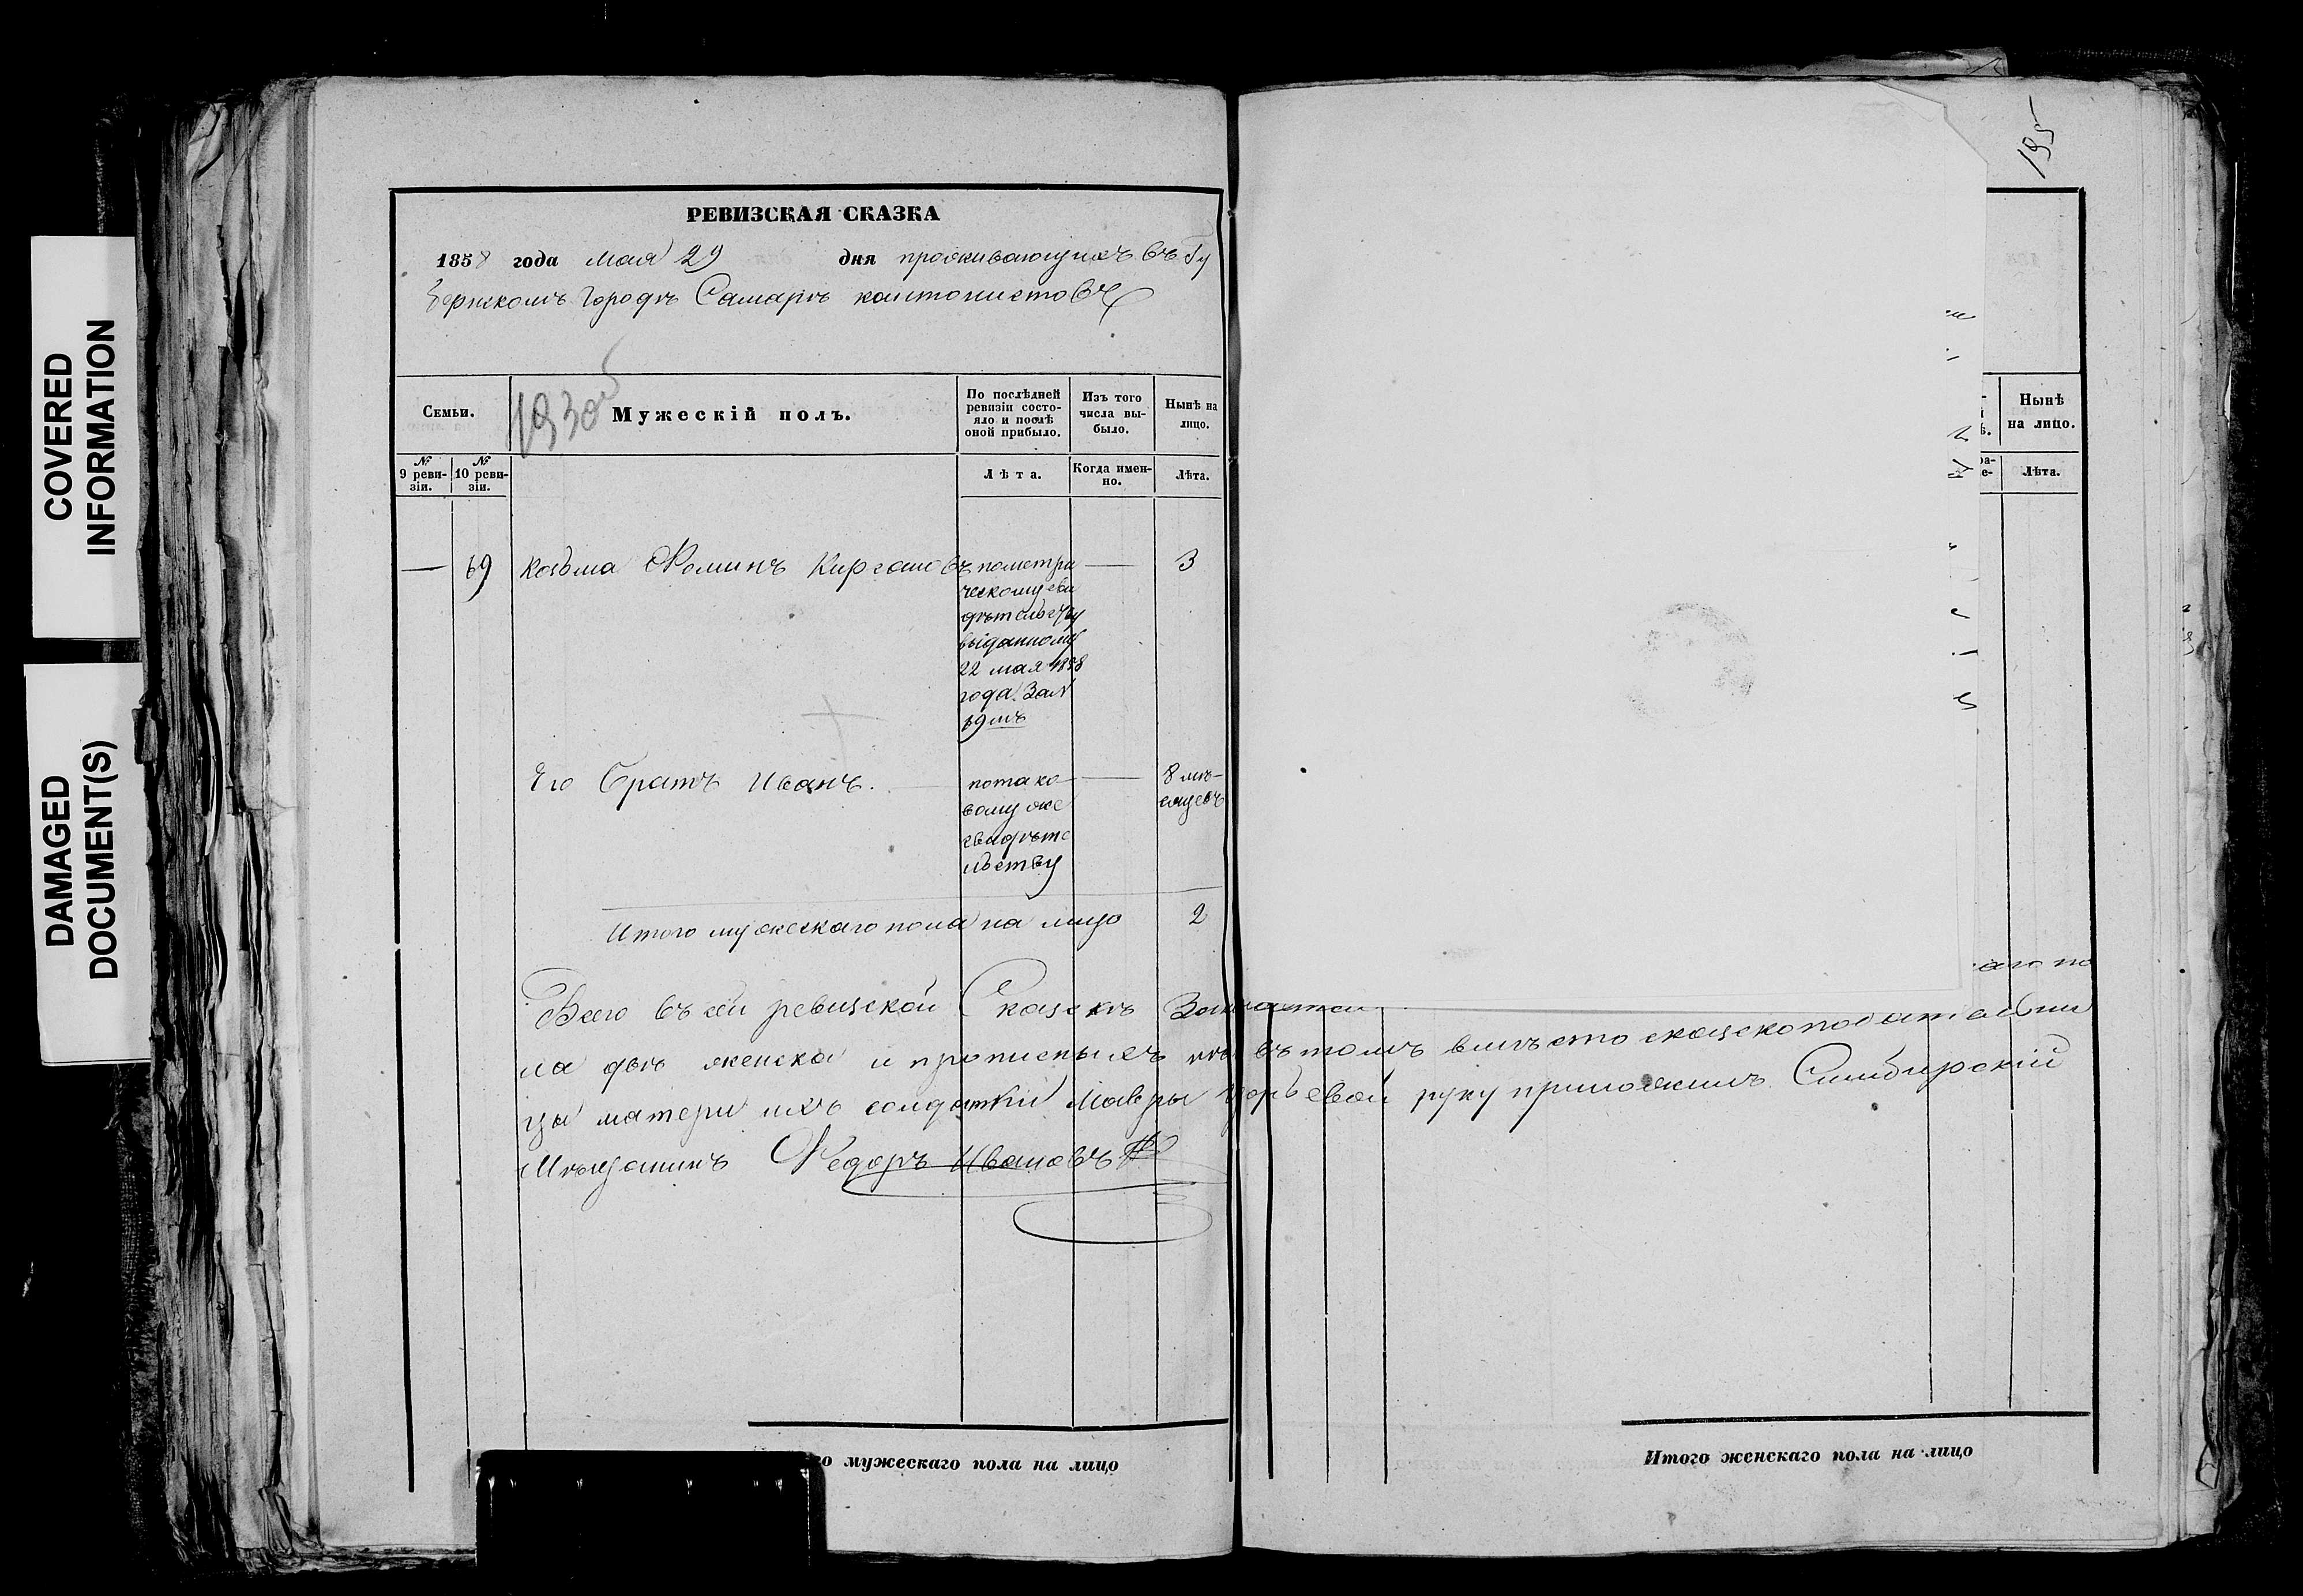 COVERED
INFORMATION
DAMAGED
DOCUMENT(S)
РЕВИЗСКАЯ СКАЗКА
1858 года Мая 29 дня проживающихъ въ Гу
бернскомъ Городѣ Самарѣ кантонистовъ
Семьи.
Мужескій полъ.
По послѣдней ревизіи состояло и послѣ оной прибыло.
Изъ того числа выбыло.
Нынѣ на лицо.
№ 9 ревизіи.
№ 10 ревизіи.
Лѣта.
Когда именно.
Лѣта.
— 69 Козьма Фоминъ — 3
пометри
ческому сви
дѣтельству
выданному
22 мая 1858
года за №
69мъ
Его Братъ Иванъ. — 8 мѣ-
сяцевъ
потако
вому же
свидѣте
льству
Итого мужескаго пола на лицо 2
Всего въ сей ревизской Сказкѣ аго по
ла двѣ женска и прописныхъ нѣтъ въ томъ вмѣсто сказкоподательни
цы матери ихъ солдатки Мавры руку приложилъ Симбирскій
Мѣщанинъ Федоръ Ивановъ
го мужескаго пола на лицо
195
Нынѣ на лицо.
Лѣта.
Итого женскаго пола на лицо